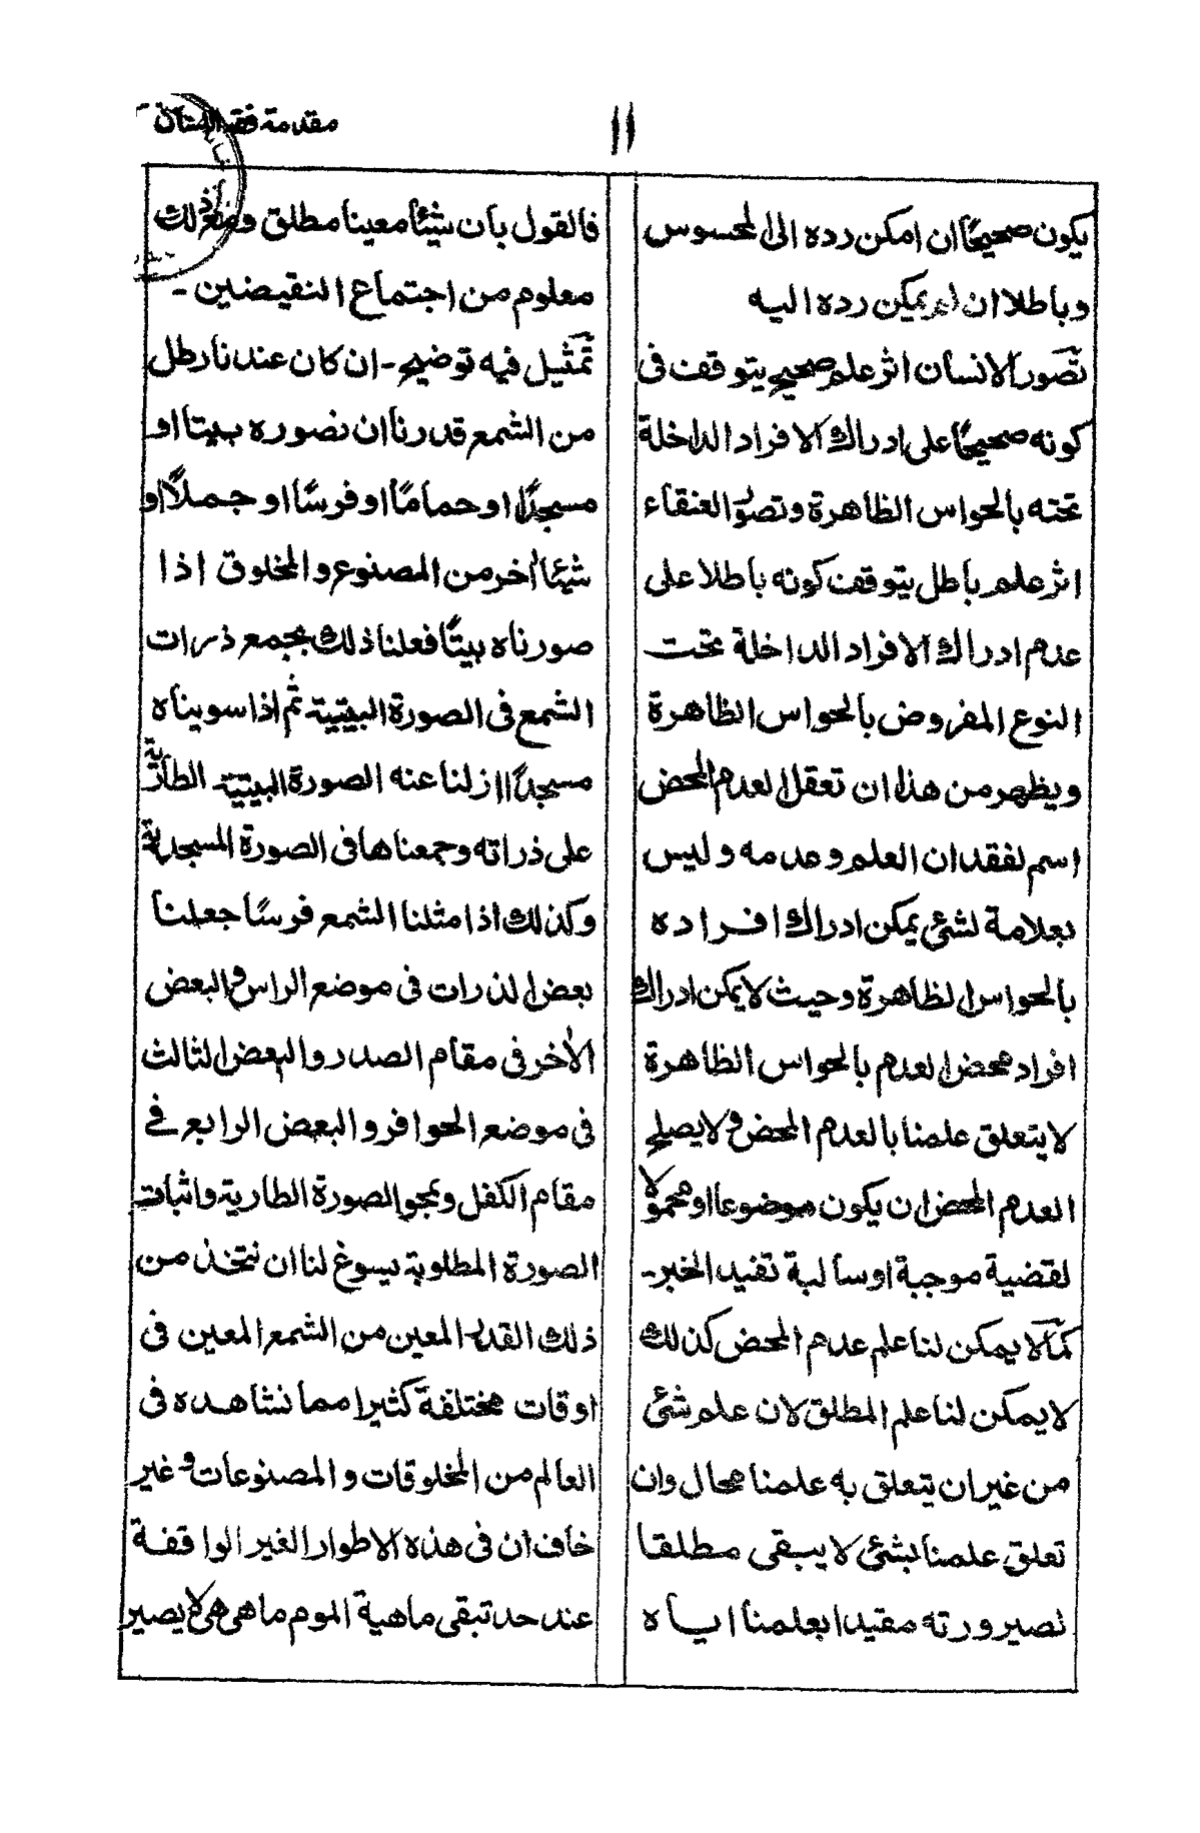 مقدمة فقه
١١
يكون صحيحًا ان امكن رده الى المحسوس
وباطلا ان لم يمكن رده اليه
تصور الانسان اثر علم صحيح يتوقف فى
كونه صحيحًا على ادراك الافراد الداخلة
تحته بالحواس الظاهرة وتصوّر العنقاء
اثر علم باطل يتوقف كونه باطلا على
عدم ادراك الافراد الداخلة تحت
النوع المفروض بالحواس الظاهرة
ويظهر من هذا ان تعقل العدم المحض
اسم لفقدان العلم وعدمه وليس
بعلامة لشئ يمكن ادراك افراده
بالحواس الظاهرة وحيث لا يمكن ادراك
افراد محض العدم بالحواس الظاهرة
لا يتعلق علمنا بالعدم المحض ولا يصلح
العدم المحض ان يكون موضوعا او محمولا
لقضية موجبة او سالبة تفيد الخبر-
كما لا يمكن لنا علم عدم المحض كذلك
لا يمكن لنا علم المطلق لان علم شئ
من غير ان يتعلق به علمنا محال وان
تعلق علمنا بشئ لا يبقى مطلقا
لصيرورته مقيدا بعلمنا اياه
فالقول بان شيئًا معينا مطلق ومع ذلك
معلوم من اجتماع النقيضين-
تمثيل فيه توضيح- ان كان عندنا رطل
من الشمع قدرنا ان نصوره بيتا او
مسجدًا او حمامًا او فرسًا او جملًا او
شيئا اٰخر من المصنوع والمخلوق اذا
صورناه بيتًا فعلنا ذلك بجمع ذرات
الشمع فى الصورة البيتية ثم اذا سويناه
مسجدًا ازلنا عنه الصورة البيتية الطارية
على ذراته وجمعناها فى الصورة المسجدية
وكذلك اذا مثلنا الشمع فرسًا جعلنا
بعض الذرات فى موضع الراس والبعض
الاٰخر فى مقام الصدر والبعض الثالث
فى موضع الحوافر والبعض الرابع فى
مقام الكفل ونمحو الصورة الطارية واثبات
الصورة المطلوبة يسوغ لنا ان نتخذ من
ذلك القدر المعين من الشمع المعين فى
اوقات مختلفة كثيرا مما نشاهده فى
العالم من المخلوقات والمصنوعات وغير
خاف ان فى هذه الاطوار الغير الواقفة
عند حد تبقى ماهية الموم ما هى هى لا يصير